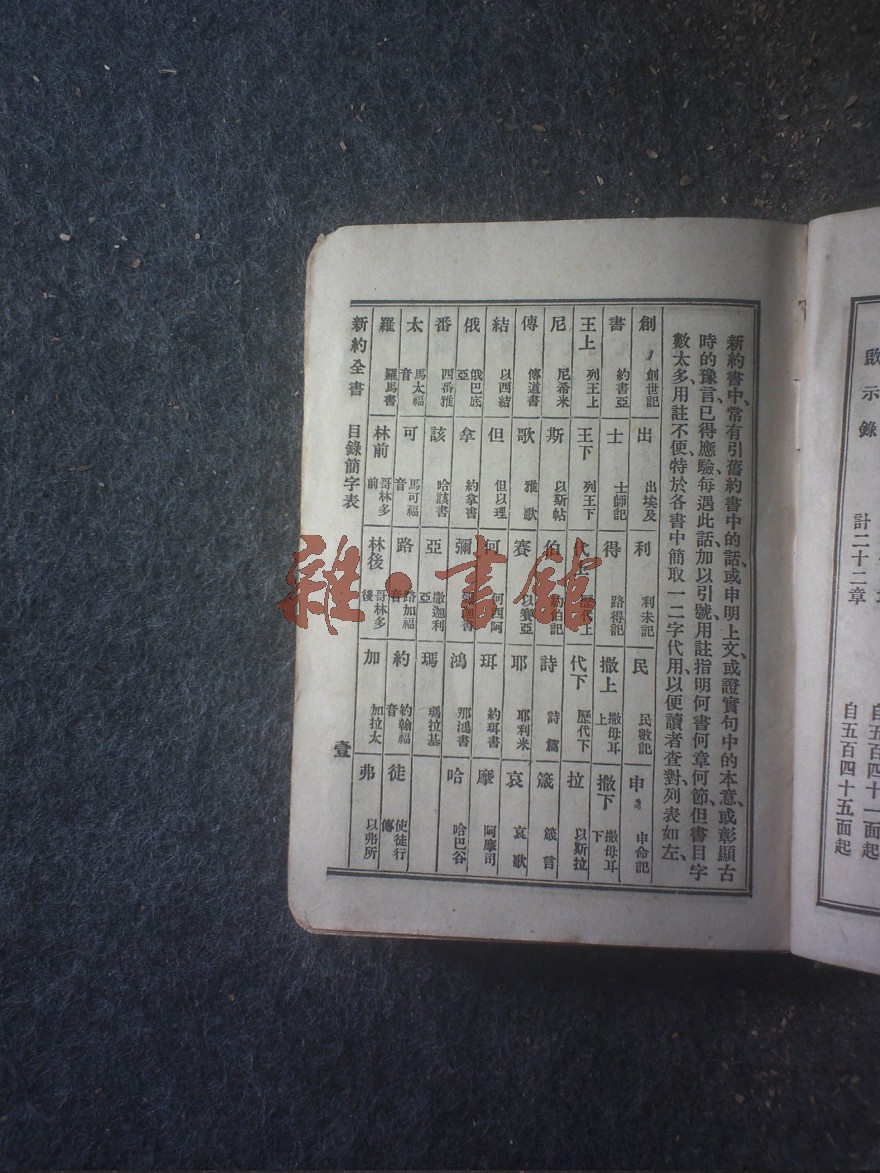 啟示錄
計二十二章
自五百四十五面起
新約書中、常有引舊約書中的話、或申明上文、或證實句中的本意、或彰顯古
時的豫言、已得應驗、每遇此話、加以引號、用註指明何書何章何節、但書目字
數太多、用註不便、特於各書中簡取一二字代用、以便讀者查對、列表如左、
創 創世記 出 出埃及 利 利未記 民 民數記 申 申命記
書 約書亞 士 士師記 得 路得記 撒上 撒母耳上 撒下 撒母耳下
王上 列王上 王下 列王下 代上 歷代上 代下 歷代下 拉 以斯拉
尼 尼希米 斯 以斯帖 伯 約伯記 詩 詩篇 箴 箴言
傳 傳道書 歌 雅歌 賽 以賽亞 耶 耶利米 哀 哀歌
結 以西結 但 但以理 何 何西阿 珥 約珥書 摩 阿摩司
俄 俄巴底亞 拿 約拿書 彌 彌迦書 鴻 那鴻書 哈 哈巴谷
番 西番雅 該 哈該書 亞 撒迦利亞 瑪 瑪拉基
太 馬太福音 可 馬可福音 路 路加福音 約 約翰福音 徒 使徒行傳
羅 羅馬書 林前 哥林多前 林後 哥林多後 加 加拉太 弗 以弗所
新約全書 目錄簡字表 壹
雜·書館